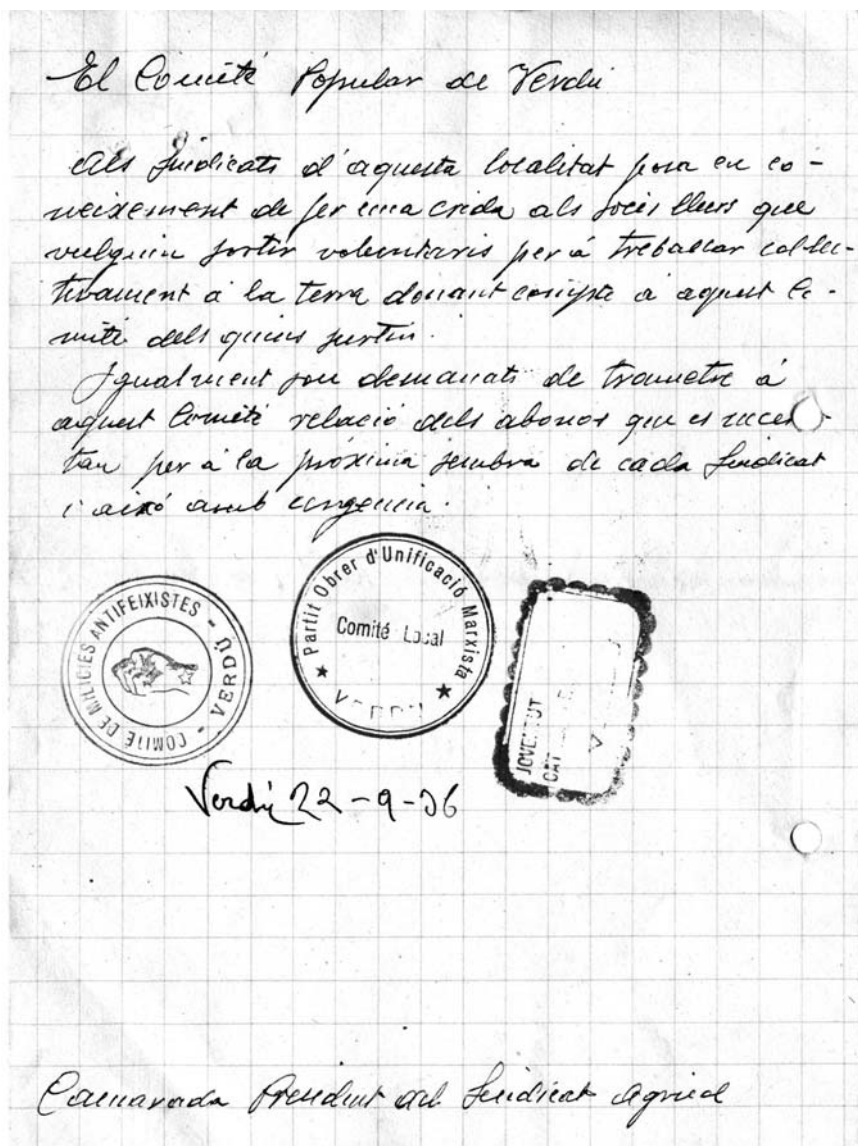 El Comité Popular de Verdú
Als Sindicats d'aquesta localitat posa en co-
neixement de fer una crida als socis llurs que
vulguin sortir voluntaris per à treballar col·lec-
tivament à la terra donant compte à aquest Co-
mité dels quins surtin.
Igualment sou demanats de trametre à
aquest Comité relació dels abonos que es neces
tan per à la próxima sembra de cada Sindicat
i aixó amb urgencia.
COMITE DE MILICIES ANTIFEIXISTES - VERDÚ -
Partit Obrer d'Unificació Marxista
Comité Local
JOVENTUT
CAT
Verdú 22-9-36
Camarada President del Sindicat Agricol